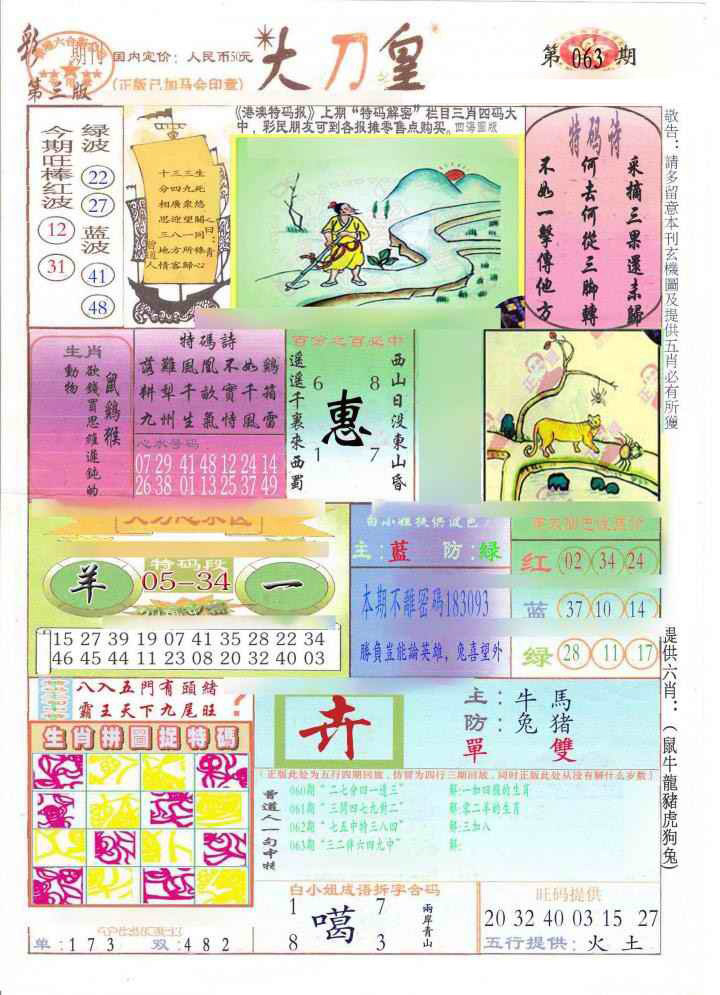 彩
期刊
第三版
国内定价：人民币50元
(正版已加马会印章)
大刀皇
第 063 期
《港澳特码报》上期“特码解密”栏目三肖四码大
中，彩民朋友可到各报摊零售点购买。四海圖版
今期旺棒红波
12
31
绿波
22
27
蓝波
41
48
十三三生
分四九死
相廣衆悠
思迎望關
三八一同
地方所歸
情客歸心
曾道人
特码诗
采摘三果還未歸
何去何從三脚轉
不如一擊傳他方
敬告：請多留意本刊玄機圖及提供五肖必有所獲
生肖
欲錢買思維遲鈍的動物
鼠鷄猴
特碼詩
落難鳳凰不如鷄
耕犁千畝實千箱
九州生氣恃風雷
心水号码
07 29 41 48 12 24 14
26 38 01 13 25 37 49
百分之百必中
西山日没東山昏
遥遥千裏來西蜀
6 8
惠
1 7
特码段
羊
05-34
一
15 27 39 19 07 41 35 28 22 34
46 45 44 11 23 08 20 32 40 03
白小姐提供波色
主:蓝 防:绿
本期不離密碼183093
勝負豈能論英雄，兔喜望外
红 02 34 24
蓝 37 10 14
绿 28 11 17
提供六肖：（鼠牛龍豬虎狗兔）
八入五門有頭緒
霸王天下九尾旺
?
生肖拼圖捉特碼
单:173 双:482
卉
主:牛馬
防:兔猪
單 雙
(正版此处为五行四期回放，仿冒为四行三期回放，同时正版此处从没有解什么岁数)
曾道人一句中特
060期“二七分四一边三” 解:一如四肢的生肖
061期“三間四七九對二” 解:零二羊的生肖
062期“七五中特三八四” 解:三加八
063期“三二伴六四九中” 解:
白小姐成语拆字合码
1 7
噶
8 3
兩岸青山
旺码提供
20 32 40 03 15 27
五行提供: 火 土